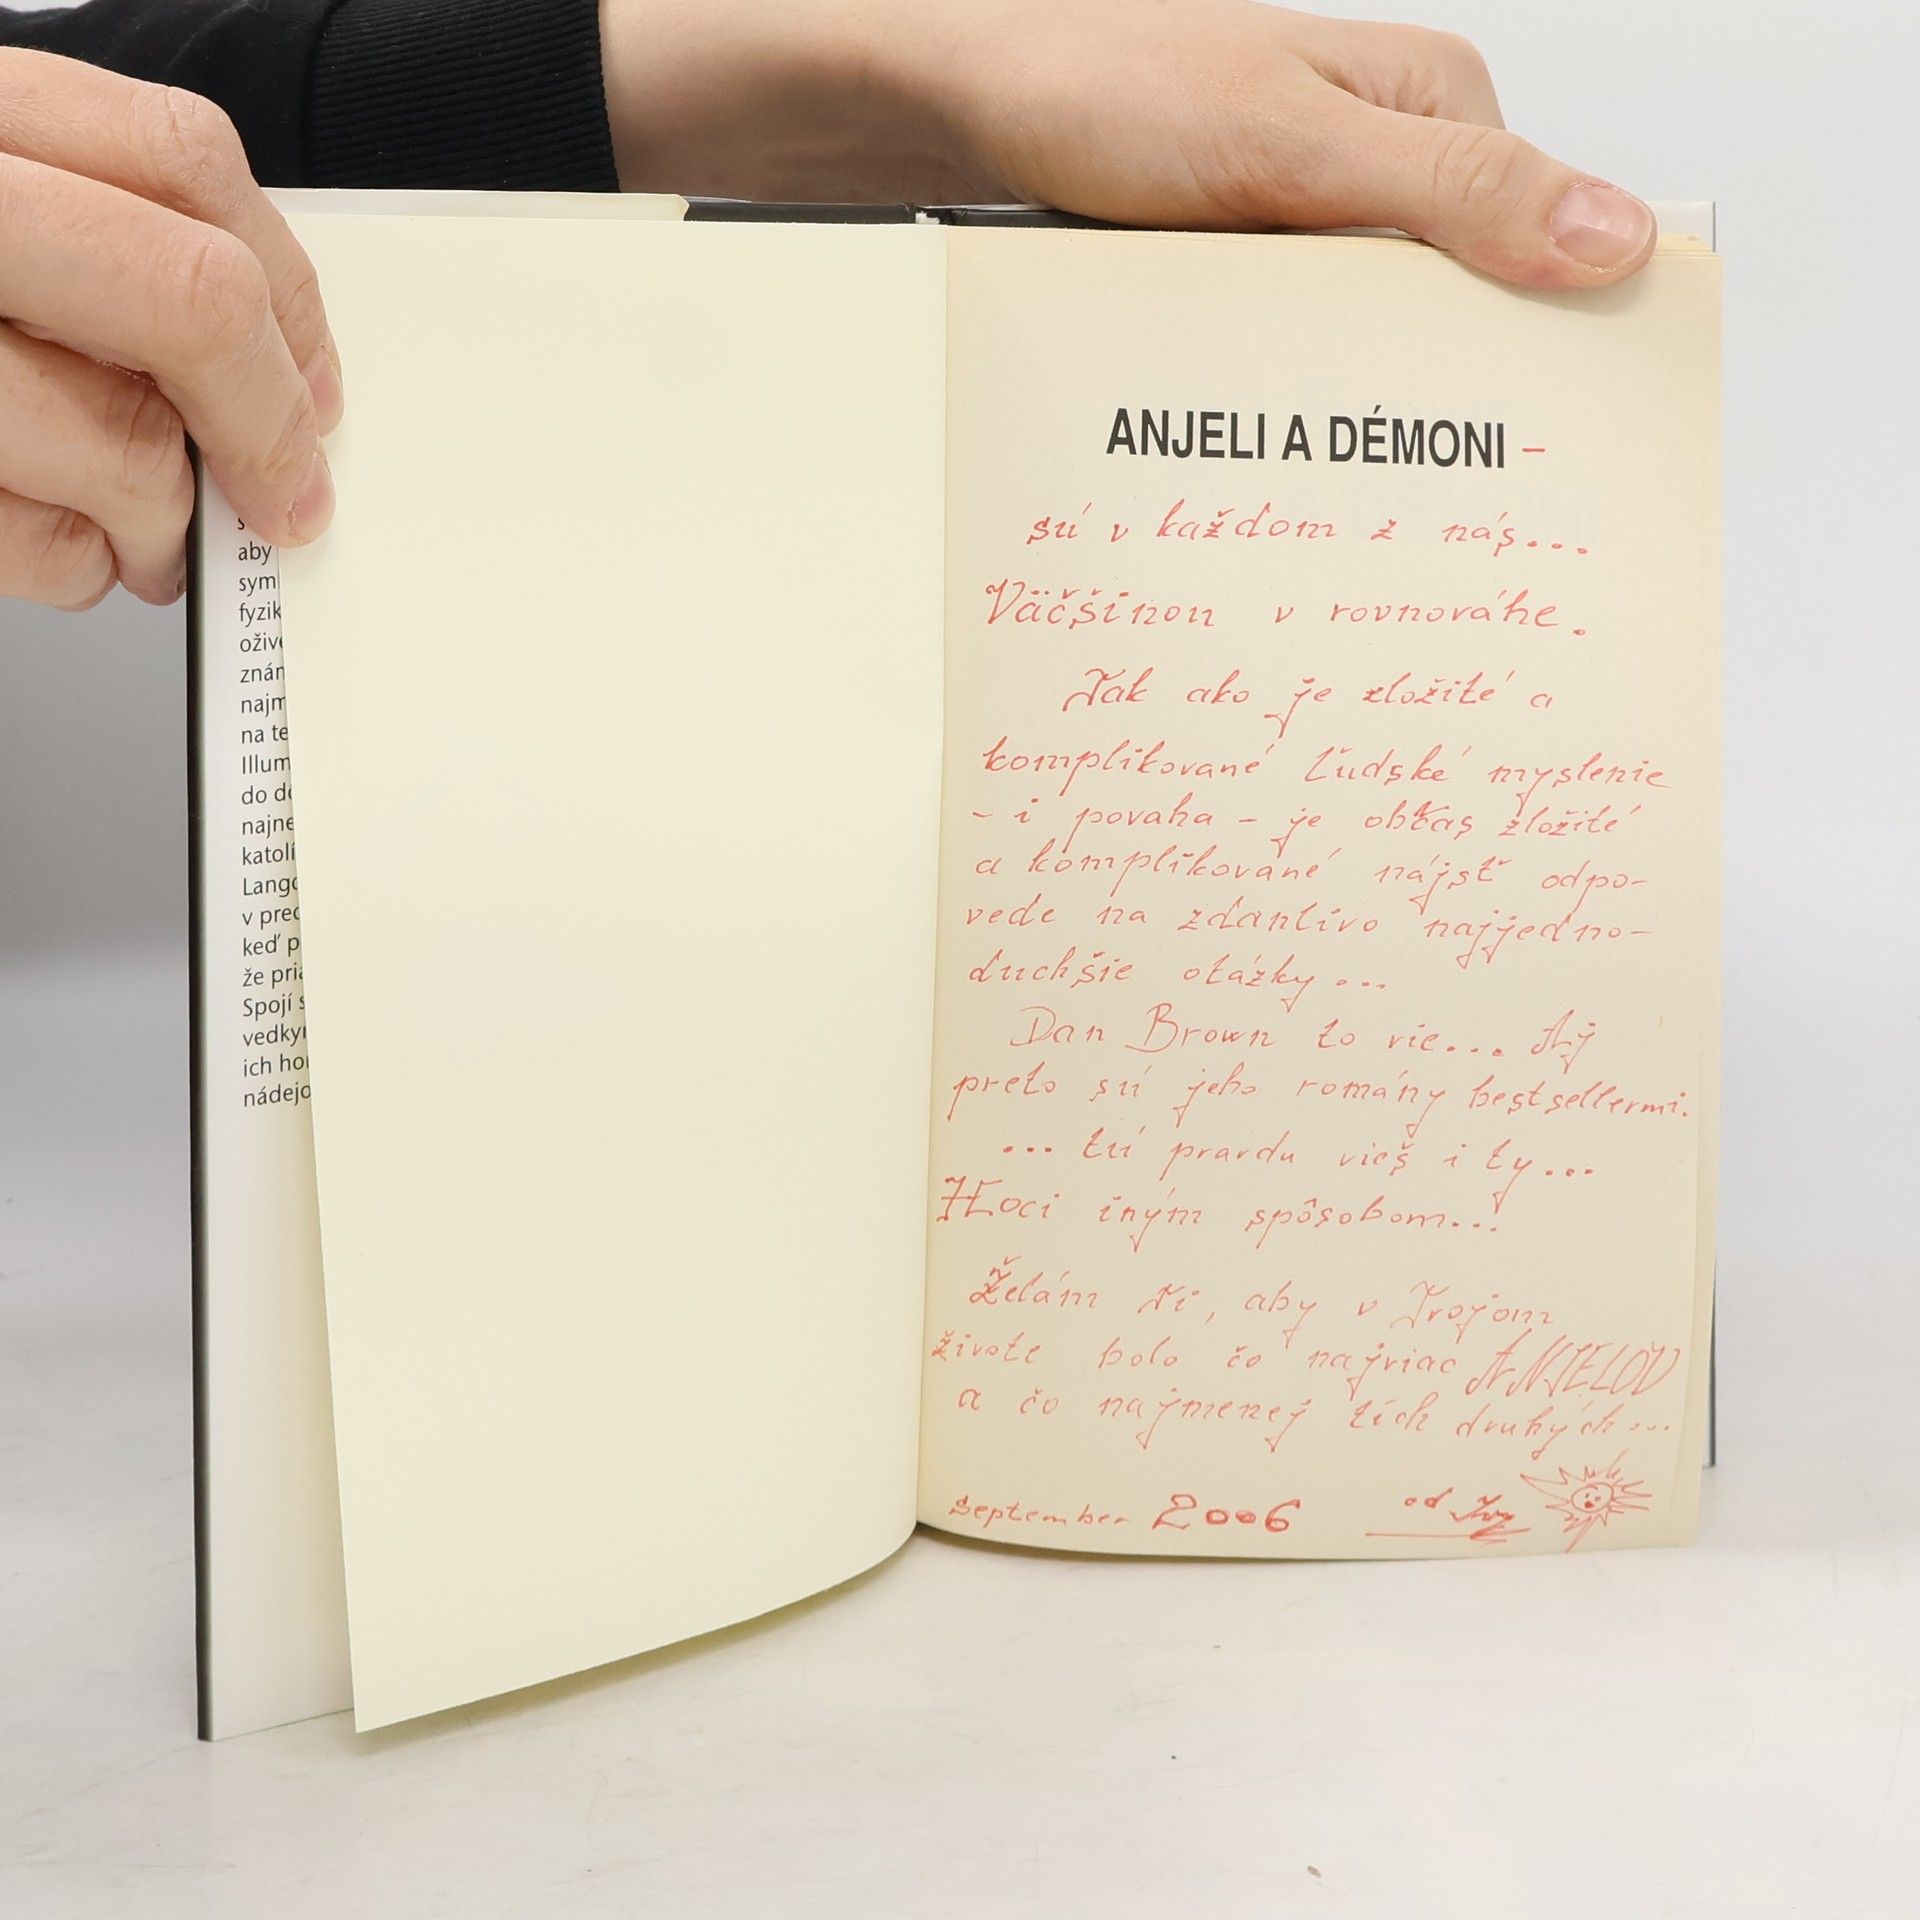 aby
sym
fyzik
oživ
znám
najm
na te
Illum
do
najne
katolí
Lang
v pred
keď p
že pria
Spojí s
vedky
ich ho
nádejo
ANJELI A DÉMONI –
sú v každom z nás...
Väčšinou v rovnováhe.
Tak ako je zložité a
komplikované ľudské myslenie
– i povaha – je občas zložité
a komplikované nájsť odpo-
vede na zdanlivo najjedno-
duchšie otázky...
Dan Brown to vie... Aj
preto sú jeho romány bestsellermi.
... tú pravdu vieš i ty...
Hoci iným spôsobom...
Želám Ti, aby v Tvojom
živote bolo čo najviac ANJELOV
a čo najmenej tích druhých...
september 2006 od